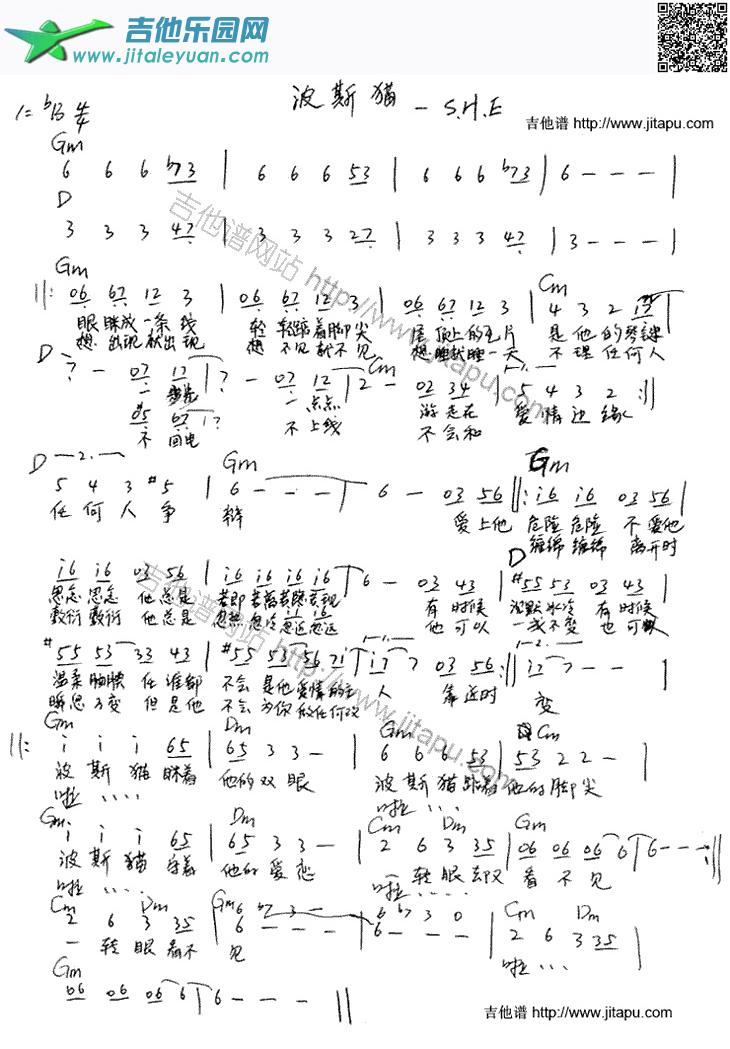 吉他乐园网
www.jitaleyuan.com
波斯猫 - S.H.E
1=bB 4/4
吉他谱 http://www.jitapu.com
Gm
6 6 6 b73 | 6 6 6 53 | 6 6 6 b73 | 6 - - - |
D
3 3 3 47 | 3 3 3 27 | 3 3 3 47 | 3 - - - |
Gm Cm
||: 06 67 12 3 | 06 67 12 3 | 06 67 12 3 | 4 3 2
眼眯成一条线 轻轻踮着脚尖 屋顶上的瓦片 是他的琴键
想出现就出现 想不见就不见 想睡就睡一天 不理任何人
D Cm -1.-
? - 07 12 | ? - 07 12 | 2 - 02 34 | 5 4 3 2 :||
一 一点点 游走在 爱情边缘
不回电 不上线 不会和
D -2.- Gm Gm
5 4 3 #5 | 6 - - - | 6 - 03 56 ||: i6 i6 03 56 |
任何人争 辩 爱上他 危险危险 不爱他
缠绵缠绵 离开时
D
i6 i6 03 56 | i6 i6 i6 i6 | 6 - 03 43 | #55 53 03 43 |
思念思念 他总是 若即若离若隐若现 有时候 沉默冰冷 有时候
敷衍敷衍 他总是 忽热忽冷忽近忽远 他可以 一成不变 也可以
#55 53 33 43 | #55 53 56 7i | i7 7 03 56 :|| i7 7 - - |
温柔腼腆 任谁都 不会是他爱情的主 人 靠近时 变
瞬息万变 但是他 不会为你做任何改
Gm Dm Gm Cm
||: i i i 65 | 65 3 3 - | 6 6 6 53 | 53 2 2 - |
波斯猫眯着 他的双眼 波斯猫踮着 他的脚尖
啦.... 啦....
Gm Dm Cm Dm Gm
i i i 65 | 65 3 3 - | 2 6 3 35 | 06 06 06 6 | 6 - - - :||
波斯猫守着 他的爱恋 一转眼却又 看不见
啦.... 啦....
Cm Dm Gm Cm Dm
2 6 3 35 | 6 - - - | 6 - - - | 2 6 3 35 |
6 b7 3 - 6 b7 3 0
一转眼看不 见 啦...
Gm
06 06 06 6 | 6 - - - ||
吉他谱 http://www.jitapu.com
吉他谱网站 http://www.jitapu.com
吉他谱网站 http://www.jitapu.com